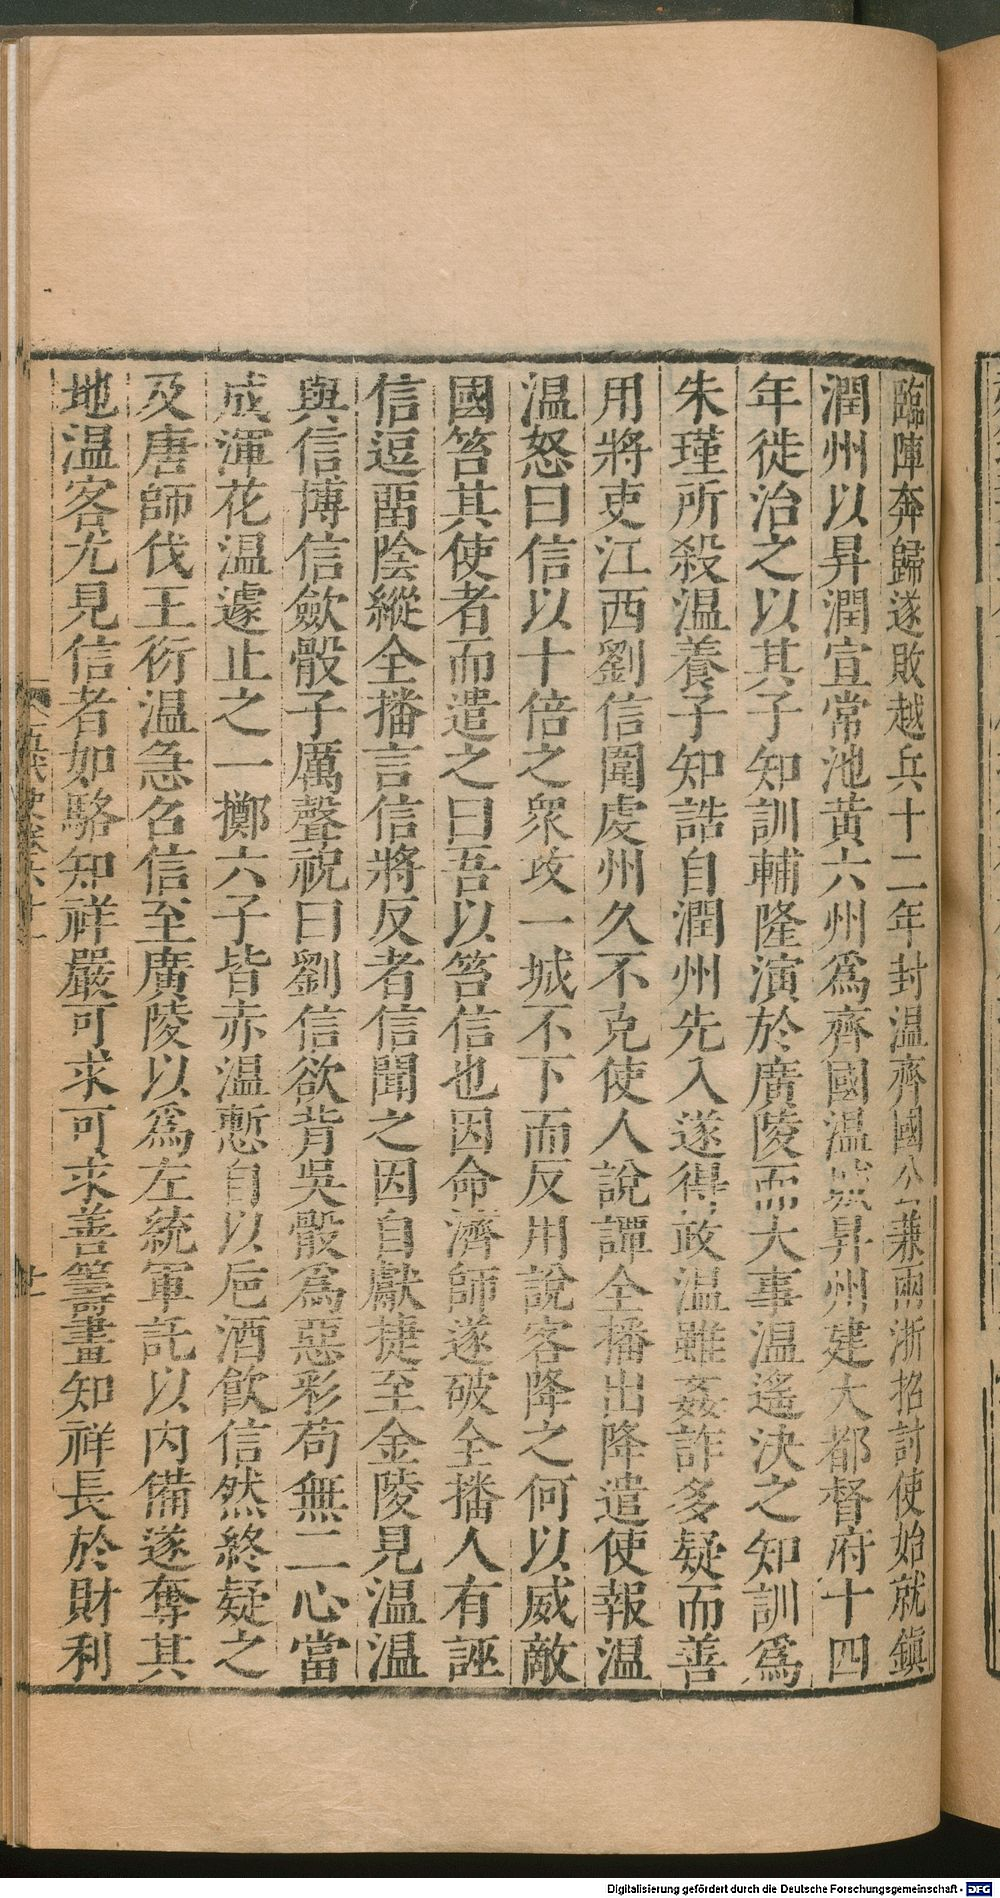 臨陣奔歸遂敗越兵十二年封温齊國公兼兩浙招討使始就鎮
潤州以昇潤宣常池黄六州爲齊國温城昇州建大都督府十四
年徙治之以其子知訓輔隆演於廣陵而大事温遙決之知訓爲
朱瑾所殺温養子知誥自潤州先入遂得政温雖姦詐多疑而善
用將吏江西劉信圍虔州久不克使人說譚全播出降遣使報温
温怒曰信以十倍之衆攻一城不下而反用說客降之何以威敵
國笞其使者而遣之曰吾以笞信也因命濟師遂破全播人有誣
信逗畱陰縱全播言信將反者信聞之因自獻捷至金陵見温温
與信博信斂骰子厲聲祝曰劉信欲背吳骰爲惡彩苟無二心當
成渾花温遽止之一擲六子皆赤温慙自以巵酒飲信然終疑之
及唐師伐王衍温急召信至廣陵以爲左統軍託以内備遂奪其
地温客尤見信者如駱知祥嚴可求可求善籌畫知祥長於財利
五代史卷六十一
廿
Digitalisierung gefördert durch die Deutsche Forschungsgemeinschaft - DFG